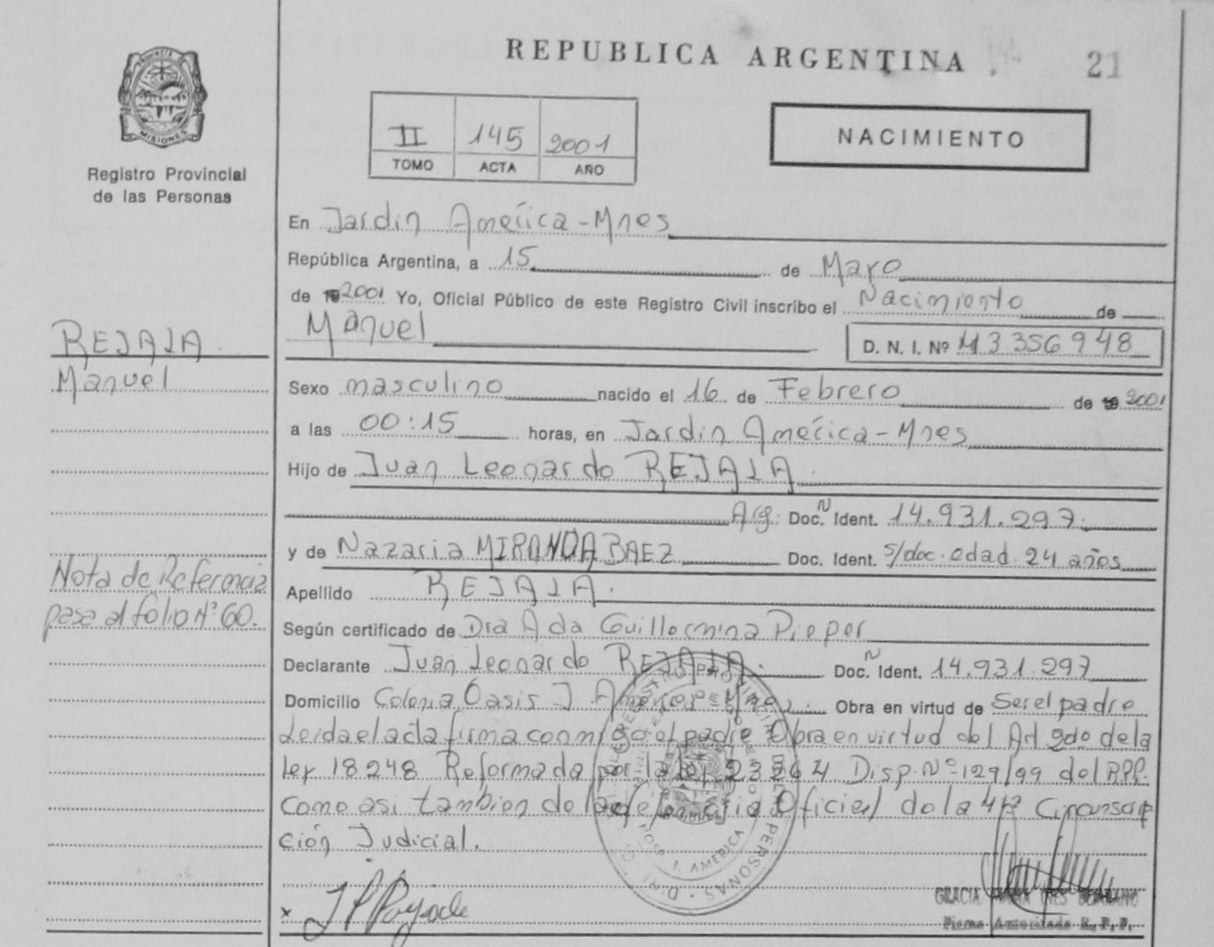 REPUBLICA ARGENTINA
21
MISIONES
Registro Provincial
de las Personas
II 145 2001
TOMO ACTA AÑO
NACIMIENTO
En Jardin América - Mnes
República Argentina, a 15 de Mayo
de 2001 Yo, Oficial Público de este Registro Civil inscribo el Nacimiento de
Manuel
D. N. I. Nº 43 356 948
REJALA
Manuel
Sexo masculino nacido el 16 de Febrero de 2001
a las 00:15 horas, en Jardin América - Mnes
Hijo de Juan Leonardo REJALA.
Arg. Doc. N Ident. 14.931.297.
y de Nazaria MIRANDA BAEZ Doc. Ident. s/doc. edad 24 años
Apellido REJALA.
Nota de Referencia
pasa al folio Nº 60.
Según certificado de Dra Ada Guillermina Pieper
Declarante Juan Leonardo REJALA. Doc. N Ident. 14.931.297
Domicilio Colonia Oasis J. América - Mnes. Obra en virtud de Ser el padre
Leida el acta firma conmigo el padre Obra en virtud del Art 2do de la
Ley 18248 Reformada por la ley 23264 Disp. Nº 129/99 del RPP.
como asi tambien de la defensoria Oficial de la 4ta Circunscrip
ción Judicial.
HOSP. J. AMERICA
PERSONAS
x
GRACIA
Firma Autorizada R. P. P.